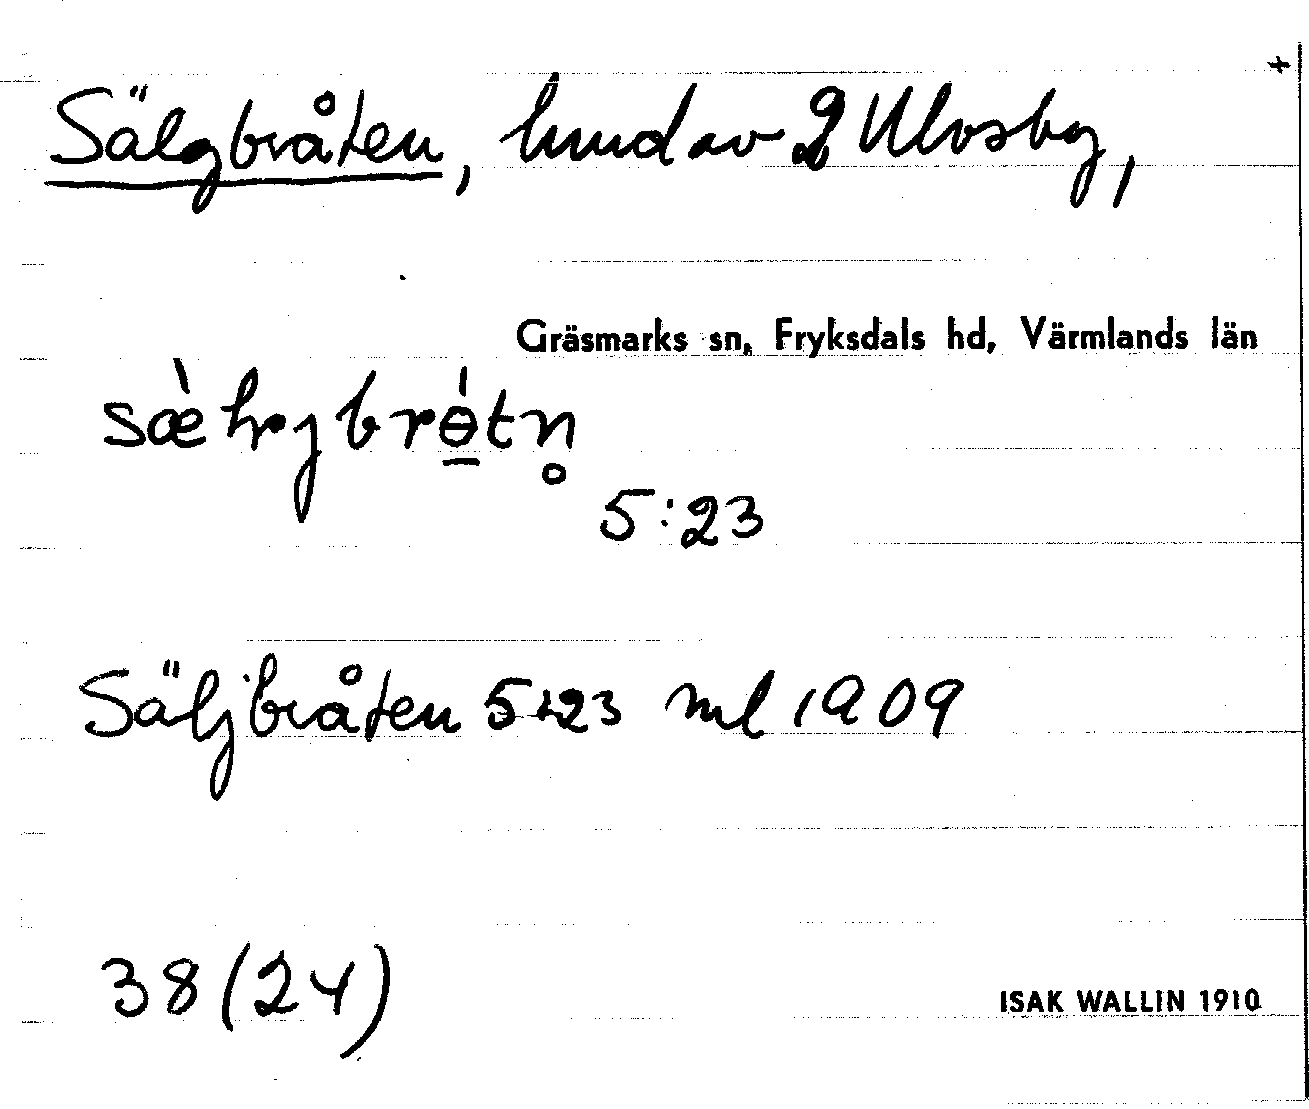 +
Sälgbråten, hmd av 2 Ulvsby,
Gräsmarks sn, Fryksdals hd, Värmlands län
5:23
Säljbråten 5:23 ml 1909
38(24)
ISAK WALLIN 1910